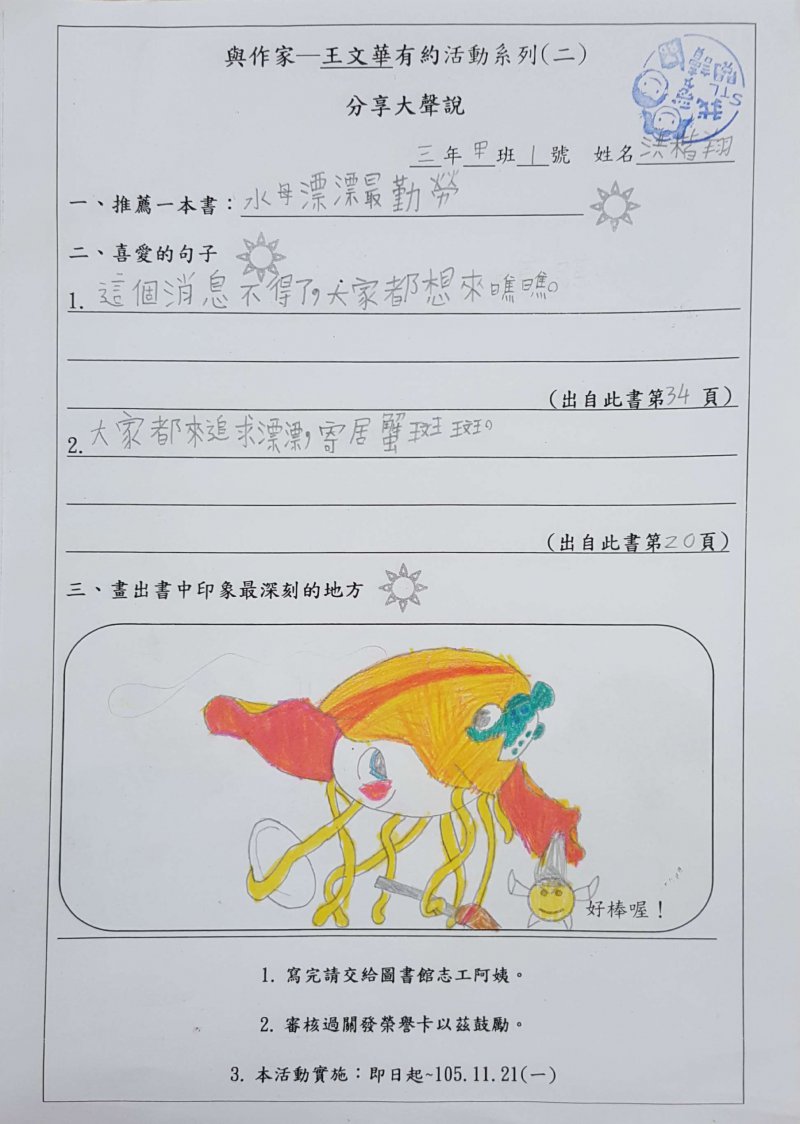 與作家—王文華有約活動系列(二)
分享大聲說
三年甲班1號 姓名洪楷翔
一、推薦一本書：水母漂漂最勤勞
二、喜愛的句子
1. 這個消息不得了，大家都想來瞧瞧。
(出自此書第34頁)
2. 大家都來追求漂漂，寄居蟹斑斑。
(出自此書第20頁)
三、畫出書中印象最深刻的地方
好棒喔！
1. 寫完請交給圖書館志工阿姨。
2. 審核過關發榮譽卡以茲鼓勵。
3. 本活動實施：即日起~105.11.21(一)
STL